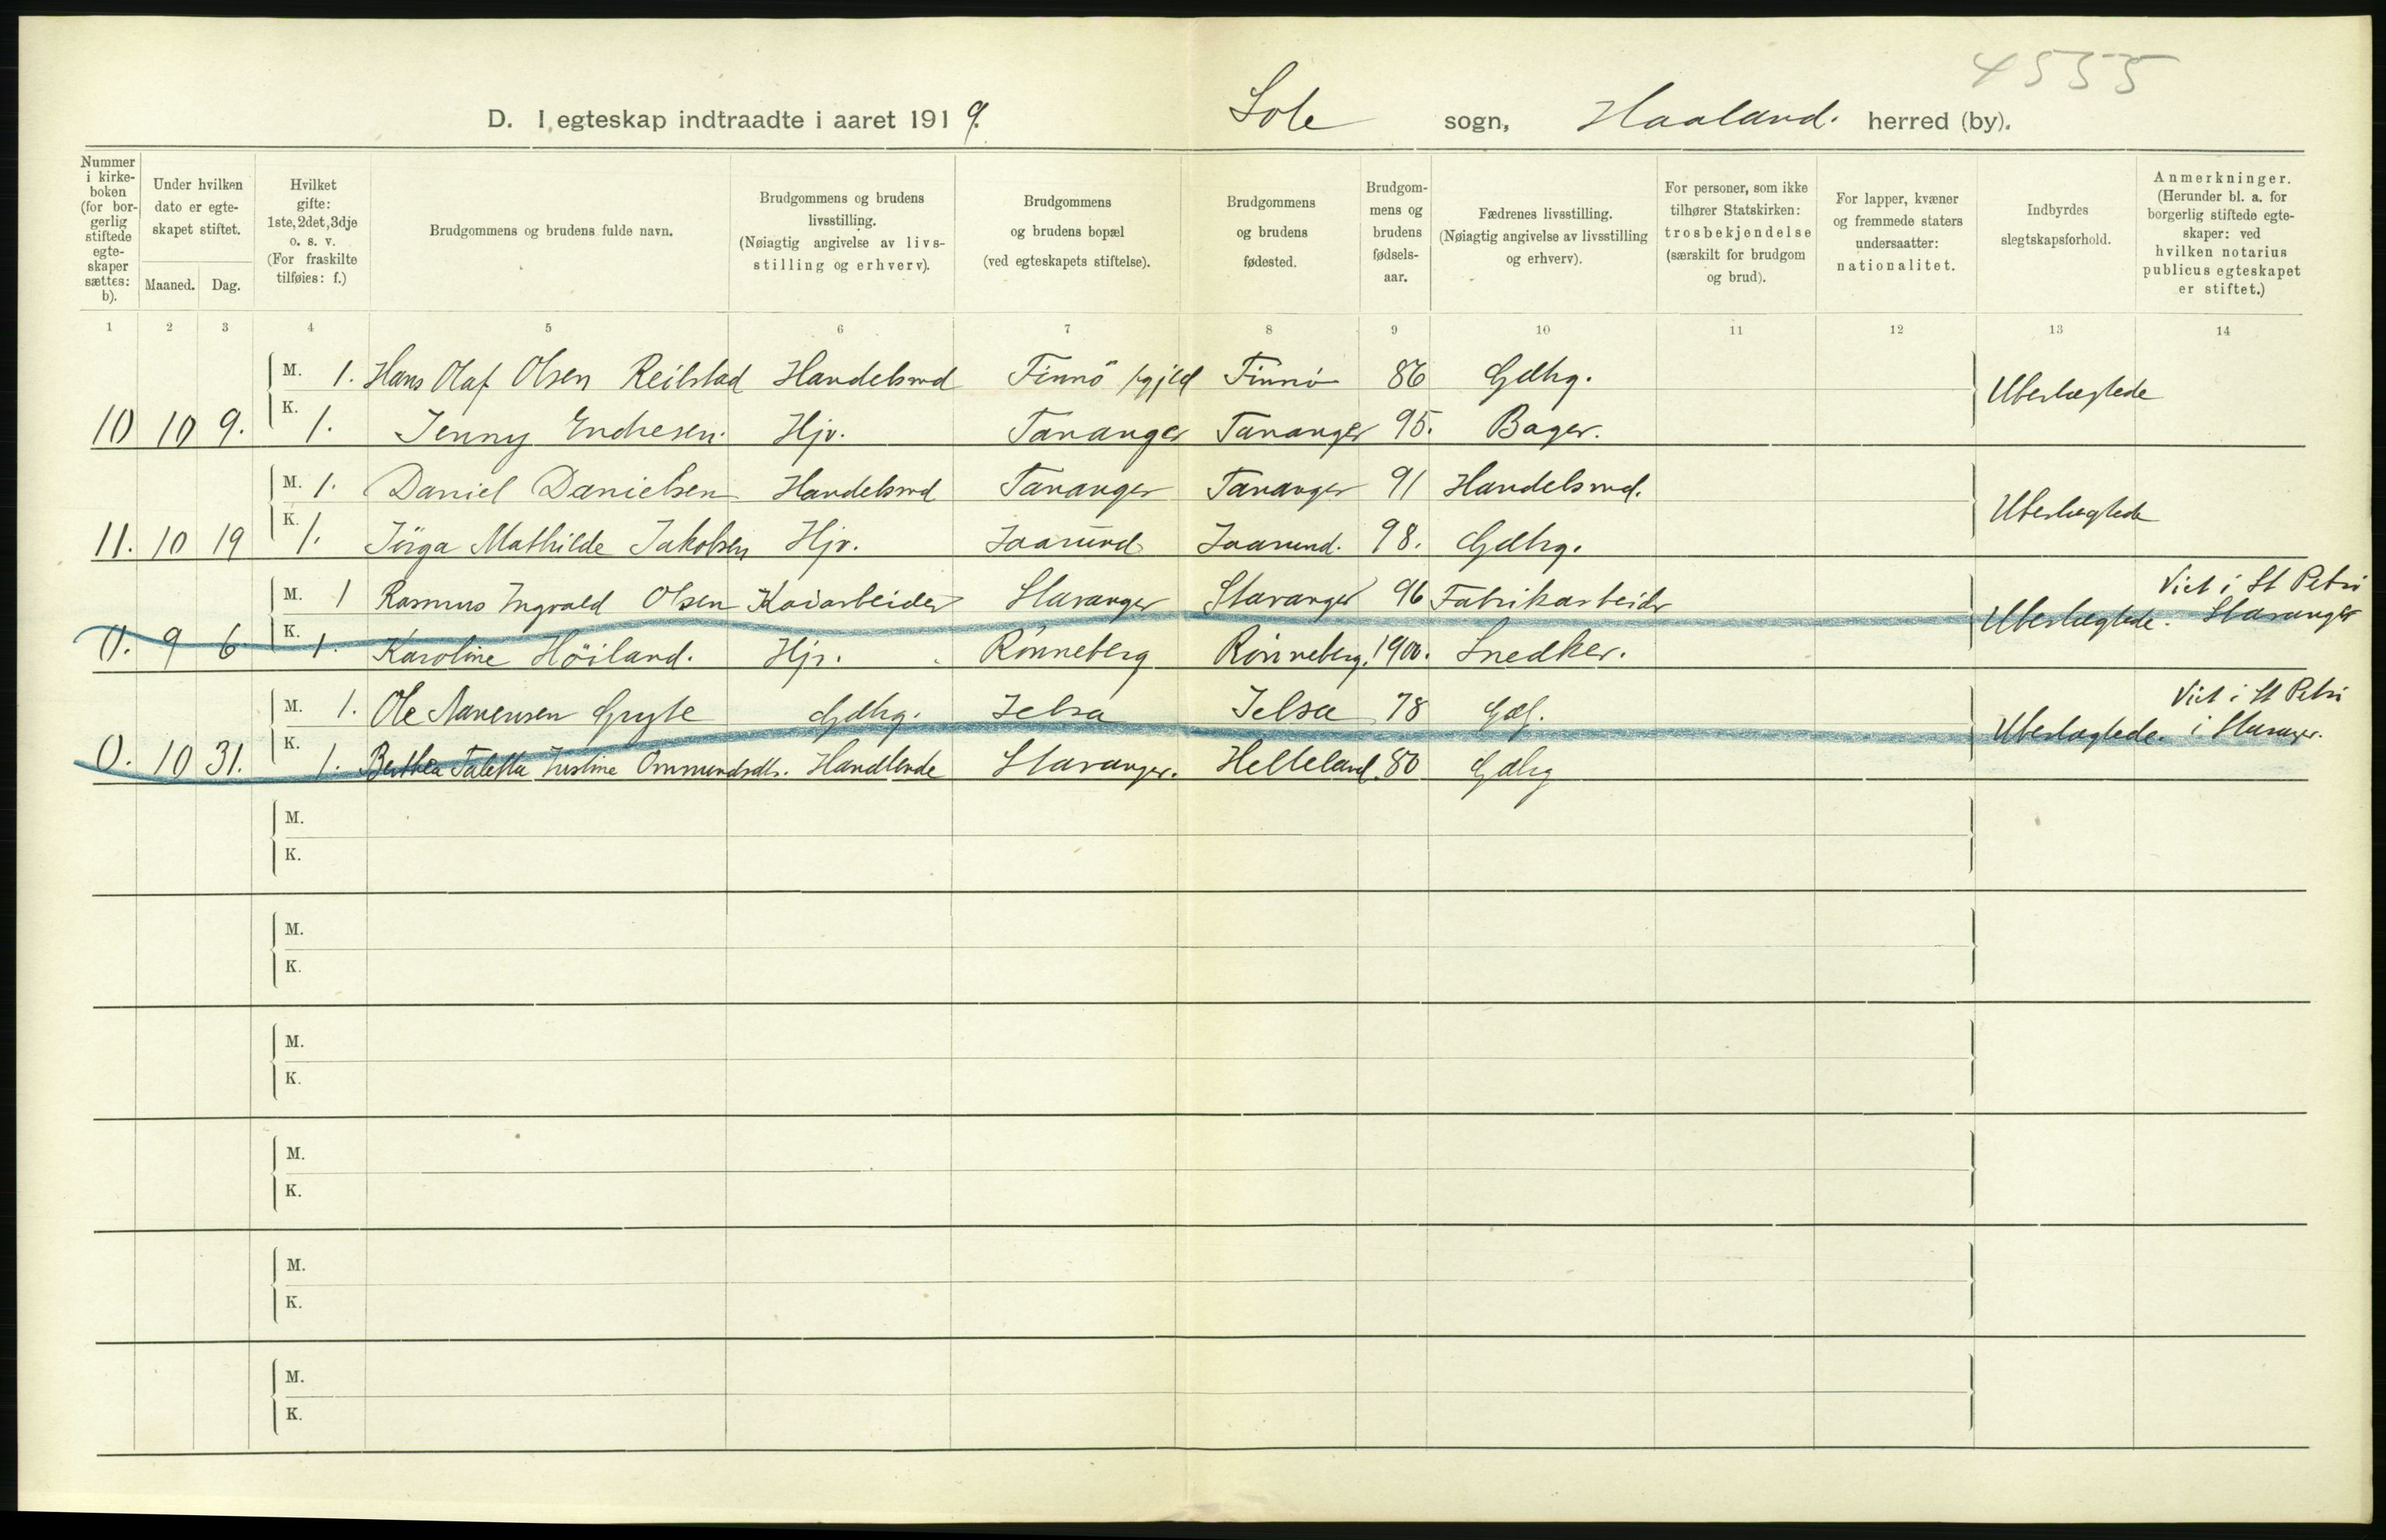 4555
D. I egteskap indtraadte i aaret 1919. Sole sogn, Haaland. herred (by).
Nummer i kirke-boken (for bor-gerlig stiftede egte-skaper sættes: b).
Under hvilken dato er egte-skapet stiftet.
Maaned. Dag.
Hvilket gifte: 1ste, 2det, 3dje o. s. v. (For fraskilte tilføies: f.)
Brudgommens og brudens fulde navn.
Brudgommens og brudens livsstilling. (Nøiagtig angivelse av livs-stilling og erhverv).
Brudgommens og brudens bopæl (ved egteskapets stiftelse).
Brudgommens og brudens fødested.
Brudgom-mens og brudens fødsels-aar.
Fædrenes livsstilling. (Nøiagtig angivelse av livsstilling og erhverv).
For personer, som ikke tilhører Statskirken: trosbekjendelse (særskilt for brudgom og brud).
For lapper, kvæner og fremmede staters undersaatter: nationalitet.
Indbyrdes slegtskapsforhold.
Anmerkninger. (Herunder bl. a. for borgerlig stiftede egte-skaper: ved hvilken notarius publicus egteskapet er stiftet.)
1 2 3 4 5 6 7 8 9 10 11 12 13 14
M. 1. Hans Olaf Olsen Reilstad Handelsmd Finnö Finnö 86 Gdbg. Ubeslægtede
10 10 9. K. 1. Jenny Endresen. Hjv. Tananger Tananger 95. Bager.
M. 1. Daniel Danielsen Handelsmd Tananger Tananger 91 Handelsmd. Ubeslægtede
11. 10 19 K. 1. Jörga Mathilde Jakobsen Hjv. Jaasund Jaasund. 98. Gdbg.
M. 1 Rasmus Ingvald Olsen Kaiarbeider Stavanger Stavanger 96 Fabrikarbeider Ubeslægtede. Viet i St Petri Stavanger
0. 9 6 K. 1. Karoline Höiland. Hjv. Rönneberg Rönneberg. 1900. Snedker.
M. 1. Ole Gryte Gdbg. Jelsa Jelsa 78 Ubeslægtede. Viet i St Petri i Stavanger.
0. 10 31. K. 1. Berthea Taletta Justine Ommundsdtr. Handlende Stavanger. Helleland. 80 Gdbg
M.
K.
M.
K.
M.
K.
M.
K.
M.
K.
M.
K.